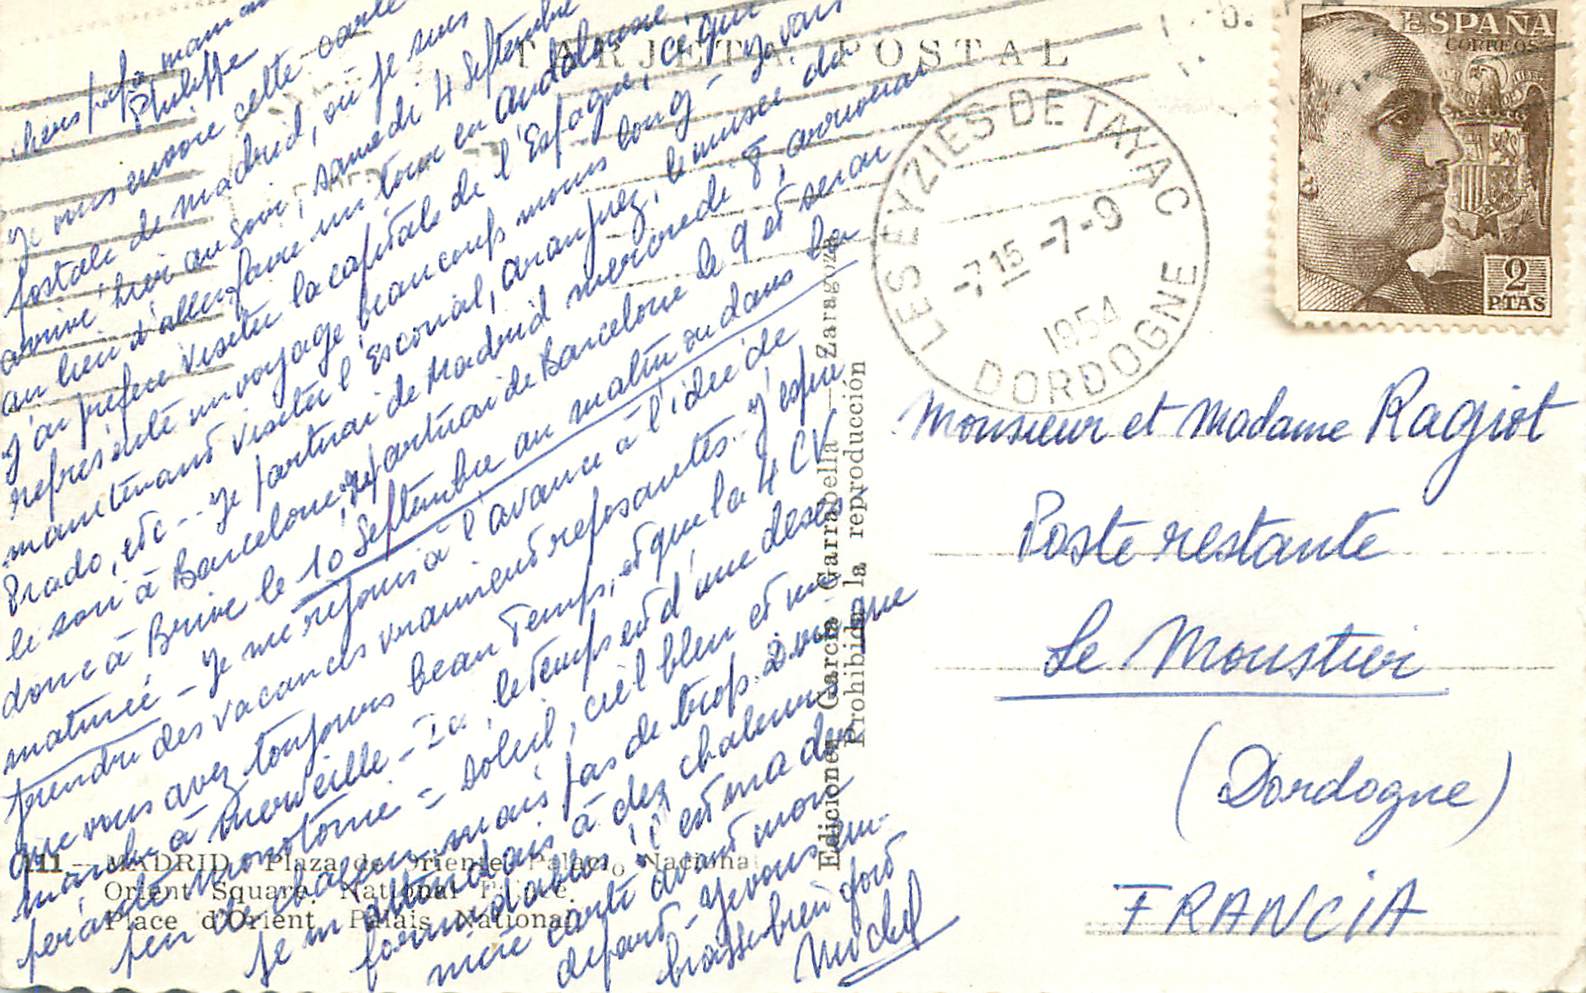 TARJETA POSTAL
ESPAÑA
CORREOS
2
PTAS
LES EYZIES DE TAYAC
-7 15 -7-9
1954
DORDOGNE
chers papa, maman
Philippe
Je vous envoie cette carte
postale de Madrid, où je suis
arrivé hier au soir, samedi 4 Septembre
au lieu d'aller faire un tour en Andalousie
J'ai préféré visiter la capitale de l'Espagne, ce qui
représente un voyage beaucoup moins long - Je vais
maintenant visiter l'Escorial, Aranjuez, le musée du
Prado, etc -- Je partirai de Madrid mercredi 8, arriverai
le soir à Barcelone, repartirai de Barcelone le 9 et serai
donc à Brive le 10 Septembre au matin ou dans la
matinée - Je me réjouis à l'avance à l'idée de
prendre des vacances vraiment reposantes. J'espère
que vous avez toujours beau temps, et que la 4 CV
marche à merveille - Ici, le temps est d'une déses-
pérante monotonie = soleil, ciel bleu et une
peu de chaleur mais pas de trop. Dire que
je m'attendais à des chaleurs
formidables! C'est ma der
nière carte avant mon
départ - Je vous em-
brasse bien fort
Michel
Monsieur et Madame Ragiot
Poste restante
Le Moustier
(Dordogne)
FRANCIA
Ediciones García Garrabella - Zaragoza
Prohibida la reproducción
111.- MADRID. Plaza de Oriente. Palacio Nacional
Orient Square. National Palace.
Place d'Orient. Palais National